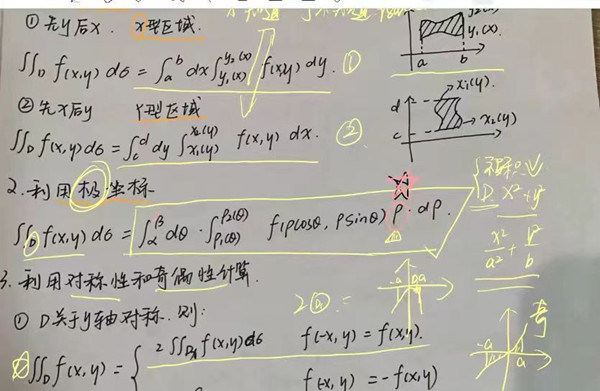 ①先y后x. x型区域.
∬_D f(x,y)dσ = ∫_a^b dx ∫_{y₁(x)}^{y₂(x)} f(x,y) dy. ①
y₂(x)
y₁(x)
a b
②先x后y Y型区域
∬_D f(x,y)dσ = ∫_c^d dy ∫_{x₁(y)}^{x₂(y)} f(x,y) dx. ②
d x₁(y)
c x₂(y)
2.利用极坐标
∬_D f(x,y)dσ = ∫_α^β dθ · ∫_{ρ₁(θ)}^{ρ₂(θ)} f(ρcosθ, ρsinθ) ρ · dρ.
D x²+y²
x²/a² + y²/b
3.利用对称性和奇偶性计算.
-a a
①D关于y轴对称.则:
∬_D f(x,y) = { 2∬_{D₁} f(x,y)dσ f(-x,y)=f(x,y).
f(-x,y)=-f(x,y)
奇
-a a